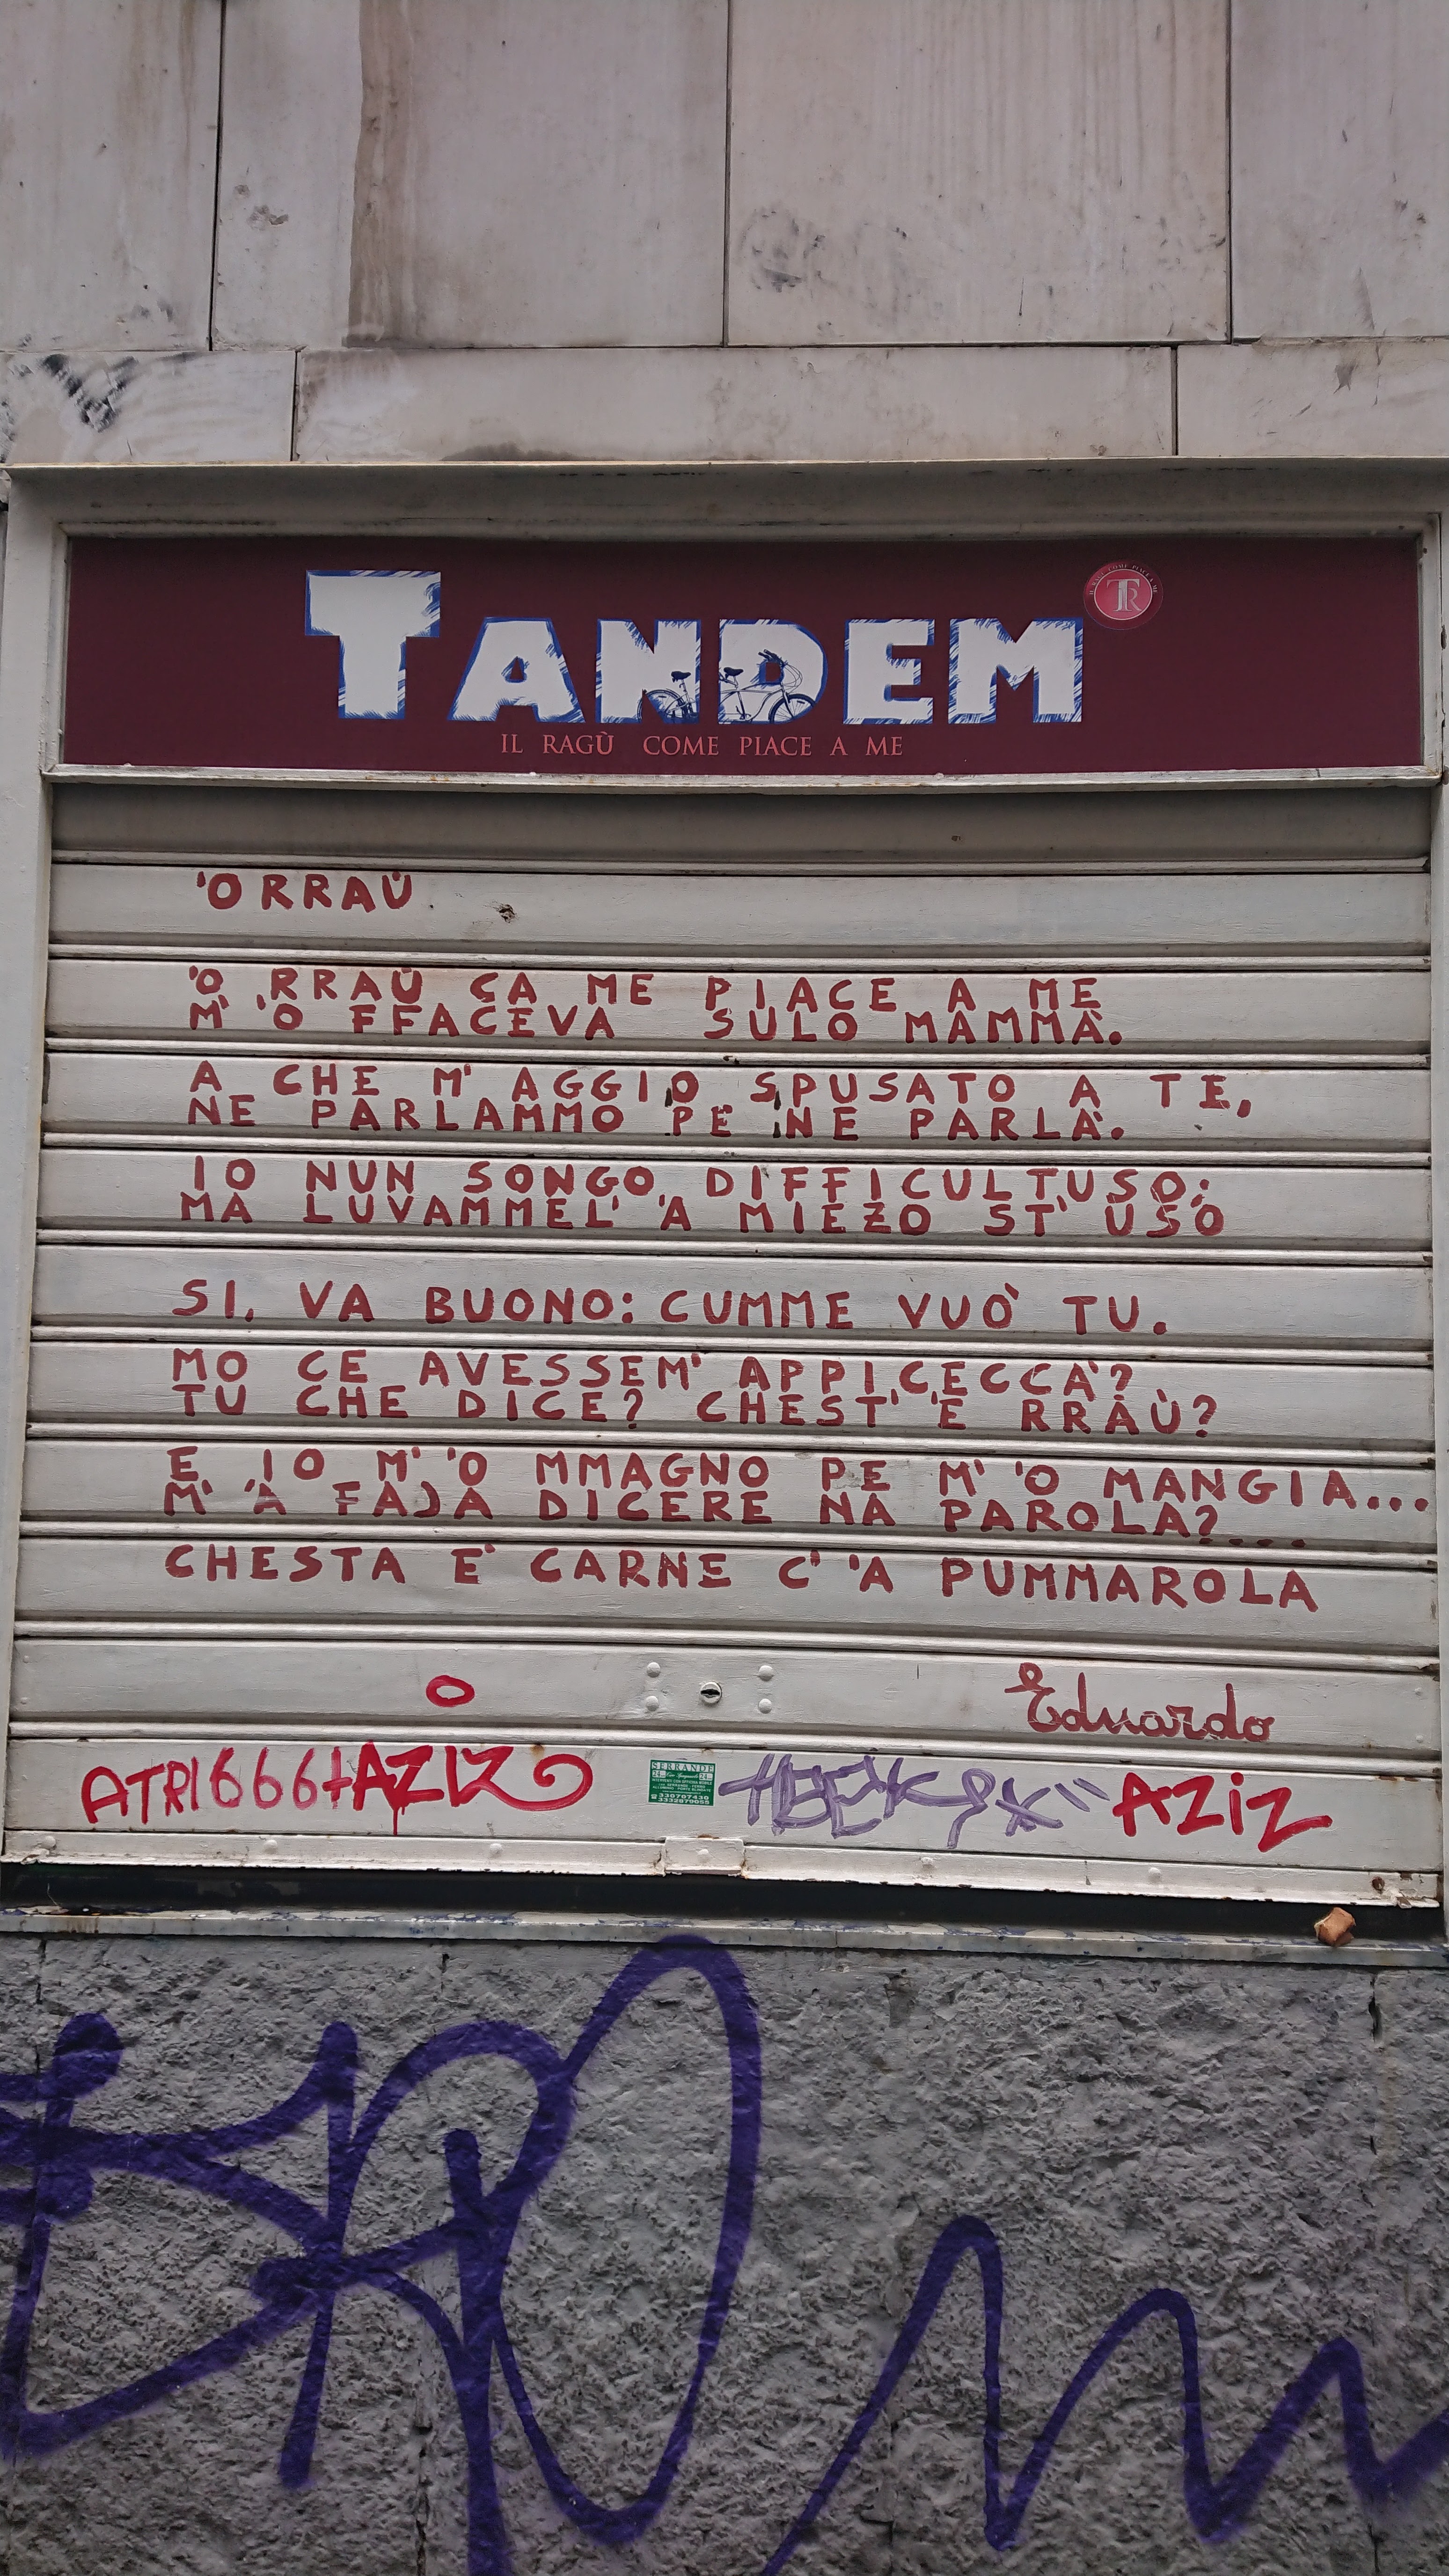 TANDEM
IL RAGÙ COME PIACE A ME
TR
'O RRAÙ
'O RRAÙ CA ME PIACE A ME
M' 'O FFACEVA SULO MAMMÀ.
A CHE M' AGGIO SPUSATO A TE,
NE PARLAMMO PE' NE PARLÀ.
IO NUN SONGO DIFFICULTUSO;
MA LUVAMMEL' 'A MIEZO ST' USO
SI, VA BUONO: CUMME VUO' TU.
MO CE AVESSEM' APPICECCÀ?
TU CHE DICE? CHEST' 'E RRAÙ?
E IO M' 'O MMAGNO PE M' 'O MANGIÀ...
M' 'A FAJA DICERE NA PAROLA?....
CHESTA E' CARNE C' 'A PUMMAROLA
Eduardo
ATRI666+AZIZ
SERRANDE
330707430
3332879055
AZiZ